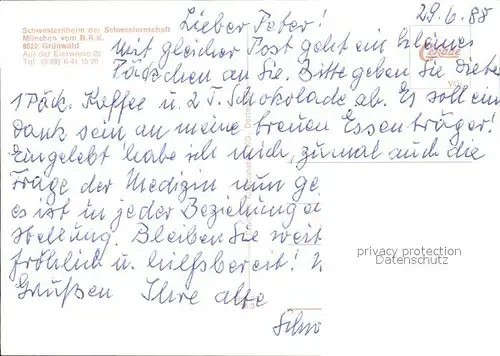 29.6.88
Lieber Peter!
Schwesternheim der Schwesternschaft
München vom B.R.K.
8022 Grünwald
Auf der Eierwiese 20
Tel. (0 89) 6 41 15 20
Mit gleicher Post geht ein kleines
Päckchen an Sie. Bitte geben Sie
1 Päck. Kaffee u. 2 T. Schokolade ab. Es soll ein
Dank sein an meine treuen Essenträger!
Eingelebt habe ich mich, zumal auch die
Frage der Medizin nun ge
es ist in jeder Beziehung
Bleiben Sie weit
fröhlich u. hilfsbereit!
Grüßen Ihre alte
Schw
privacy protection
Datenschutz